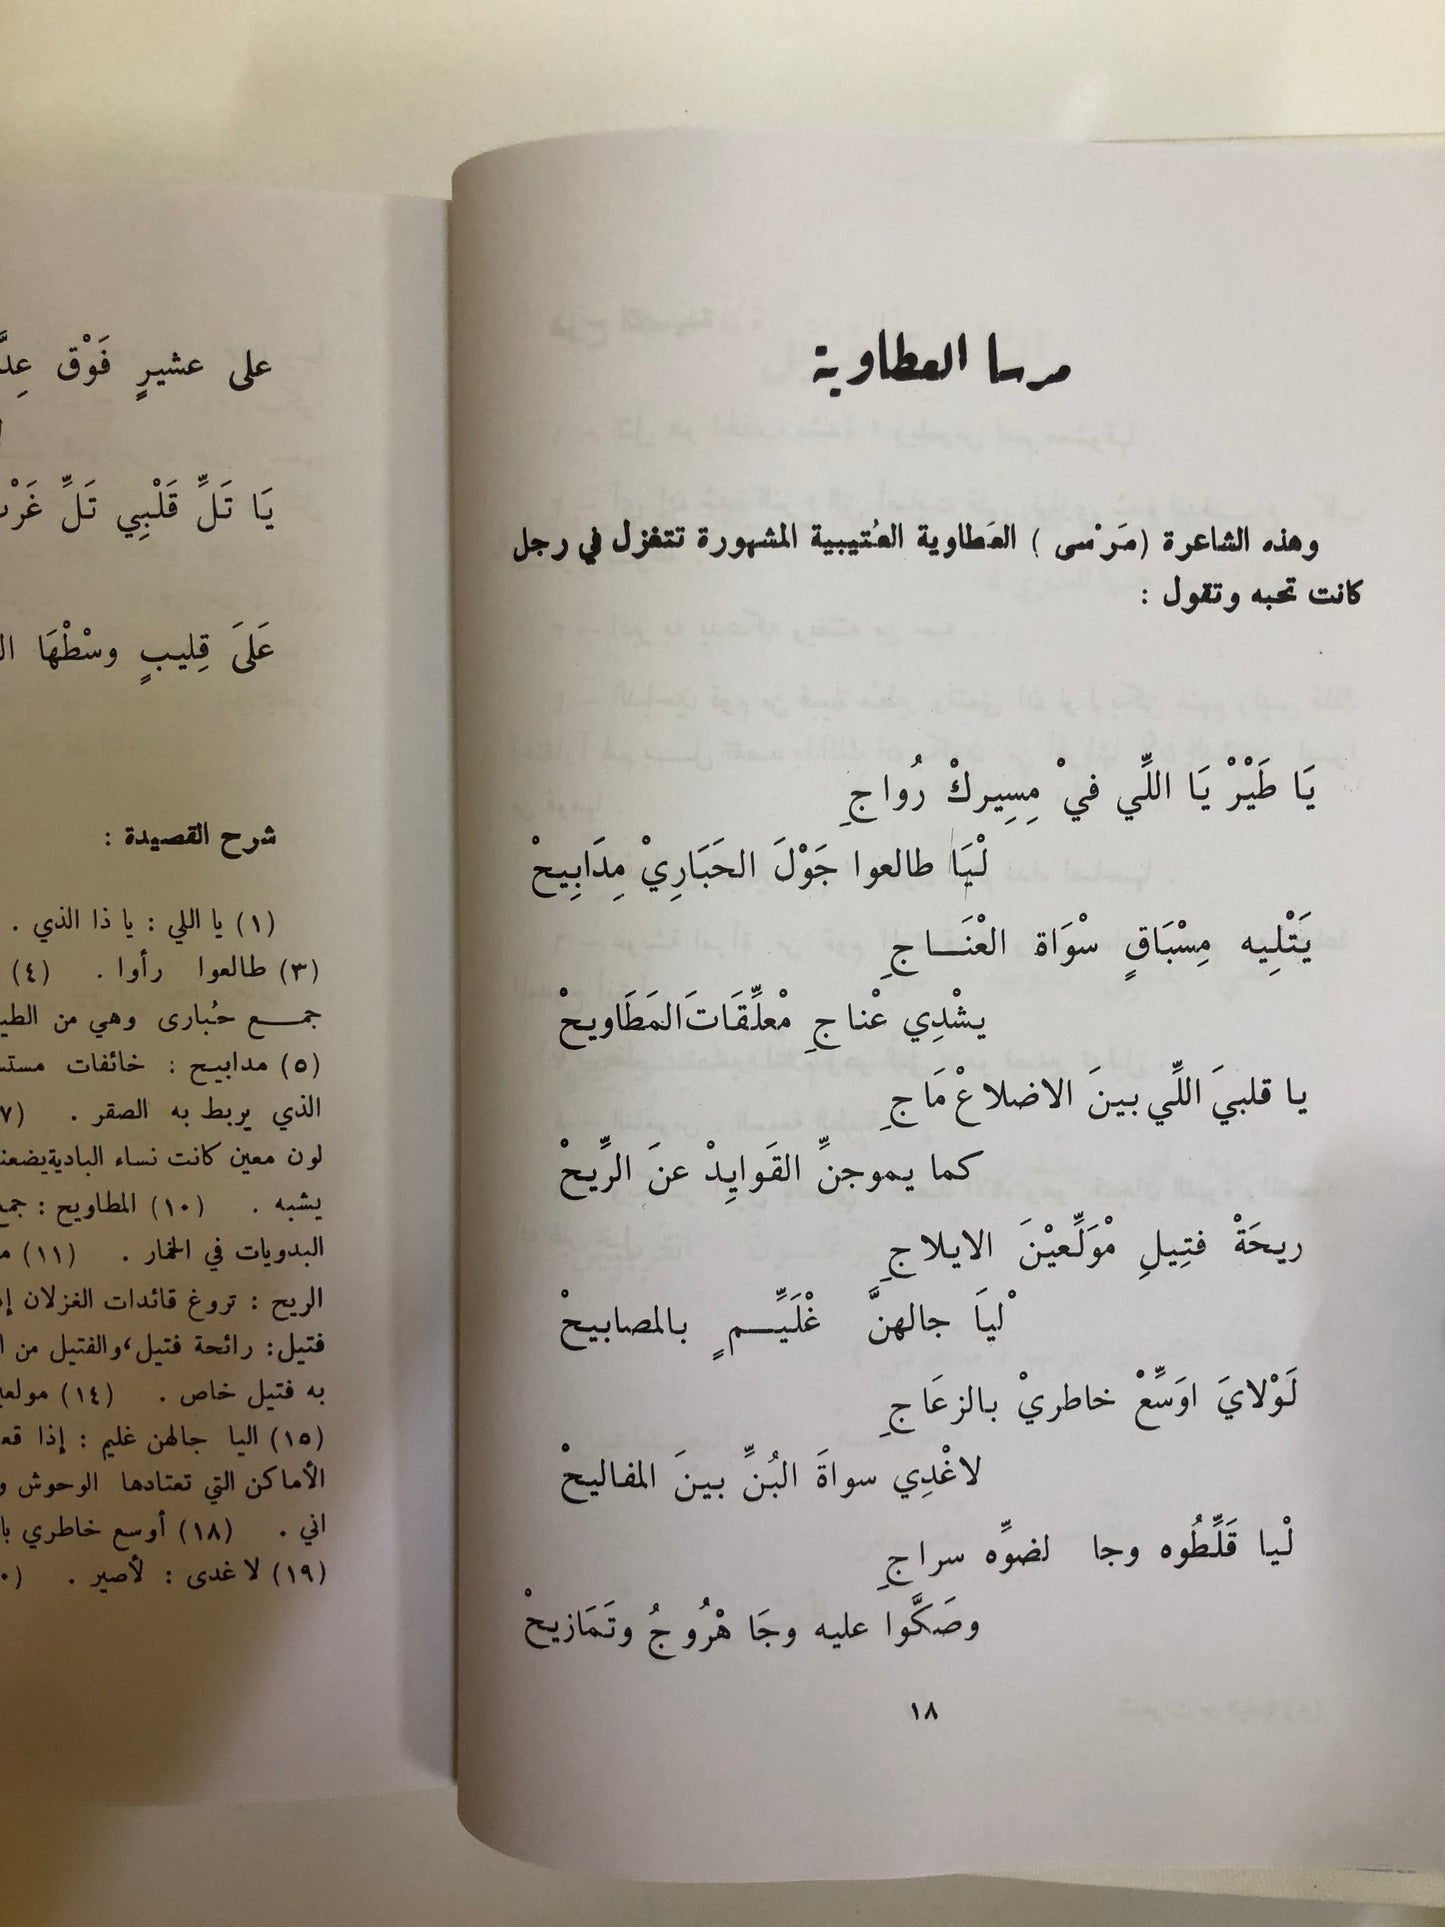 مرسا العطاوية
وهذه الشاعرة (مَرْسى ) العَطاوية العُتيبية المشهورة تتغزل في رجل
كانت تحبه وتقول :
يَا طَيْرْ يَا اللِّي فيْ مِسِيركْ رُواجِ
لْيَا طالعوا جَوْلَ الحَبَارِيْ مِدَابِيحْ
يَتْلِيه مِسْبَاقٍ سْوَاة العْنَـــاجِ
يشْدِي عْناجِ مْعلِّقَاتَ المَطَاويحْ
يا قلبيَ اللِّي بينَ الاضلاعْ مَاجِ
كما يموجنِّ القَوايِدْ عنَ الرِّيحْ
ريحَةْ فتِيلِ مْوَلِّعيْنَ الايلاجِ
ْليَا جالهنَّ غْلَيِّـــمٍ بالمصابيحْ
لَوْلايَ اوَسِّعْ خاطريْ بالزعَاجِ
لاغْدِي سواةَ البُنِّ بينَ المفاليحْ
لْيا قَلِّطُوه وجا لضوِّه سراجِ
وصَكَّوا عليه وجَا هْرُوجُ وتَمَازيحْ
١٨
على عشيرٍ فَوْق
يَا تَلِّ قَلْبِي تَلِّ
عَلىَ قِليبٍ وسْطْهَا
شرح القصيدة :
(١) يا اللي : يا ذا الذي .
(٣) طالعوا رأوا . (٤)
جمـــع حُبارى وهي من
(٥) مدابيح : خائفات
الذي يربط به الصقر .
لون معين كانت نساء البادية
يشبه . (١٠) المطاويح :
البدويات في الخمار . (١١)
الريح : تروغ قائدات الغزلان
فتيل: رائحة فتيل،والفتيل من
به فتيل خاص . (١٤)
(١٥) اليا جالهن غليم : إذا
الأماكن التي تعتادها الوحوش
اني . (١٨) أوسع خاطري
(١٩) لا غدى : لأصير .